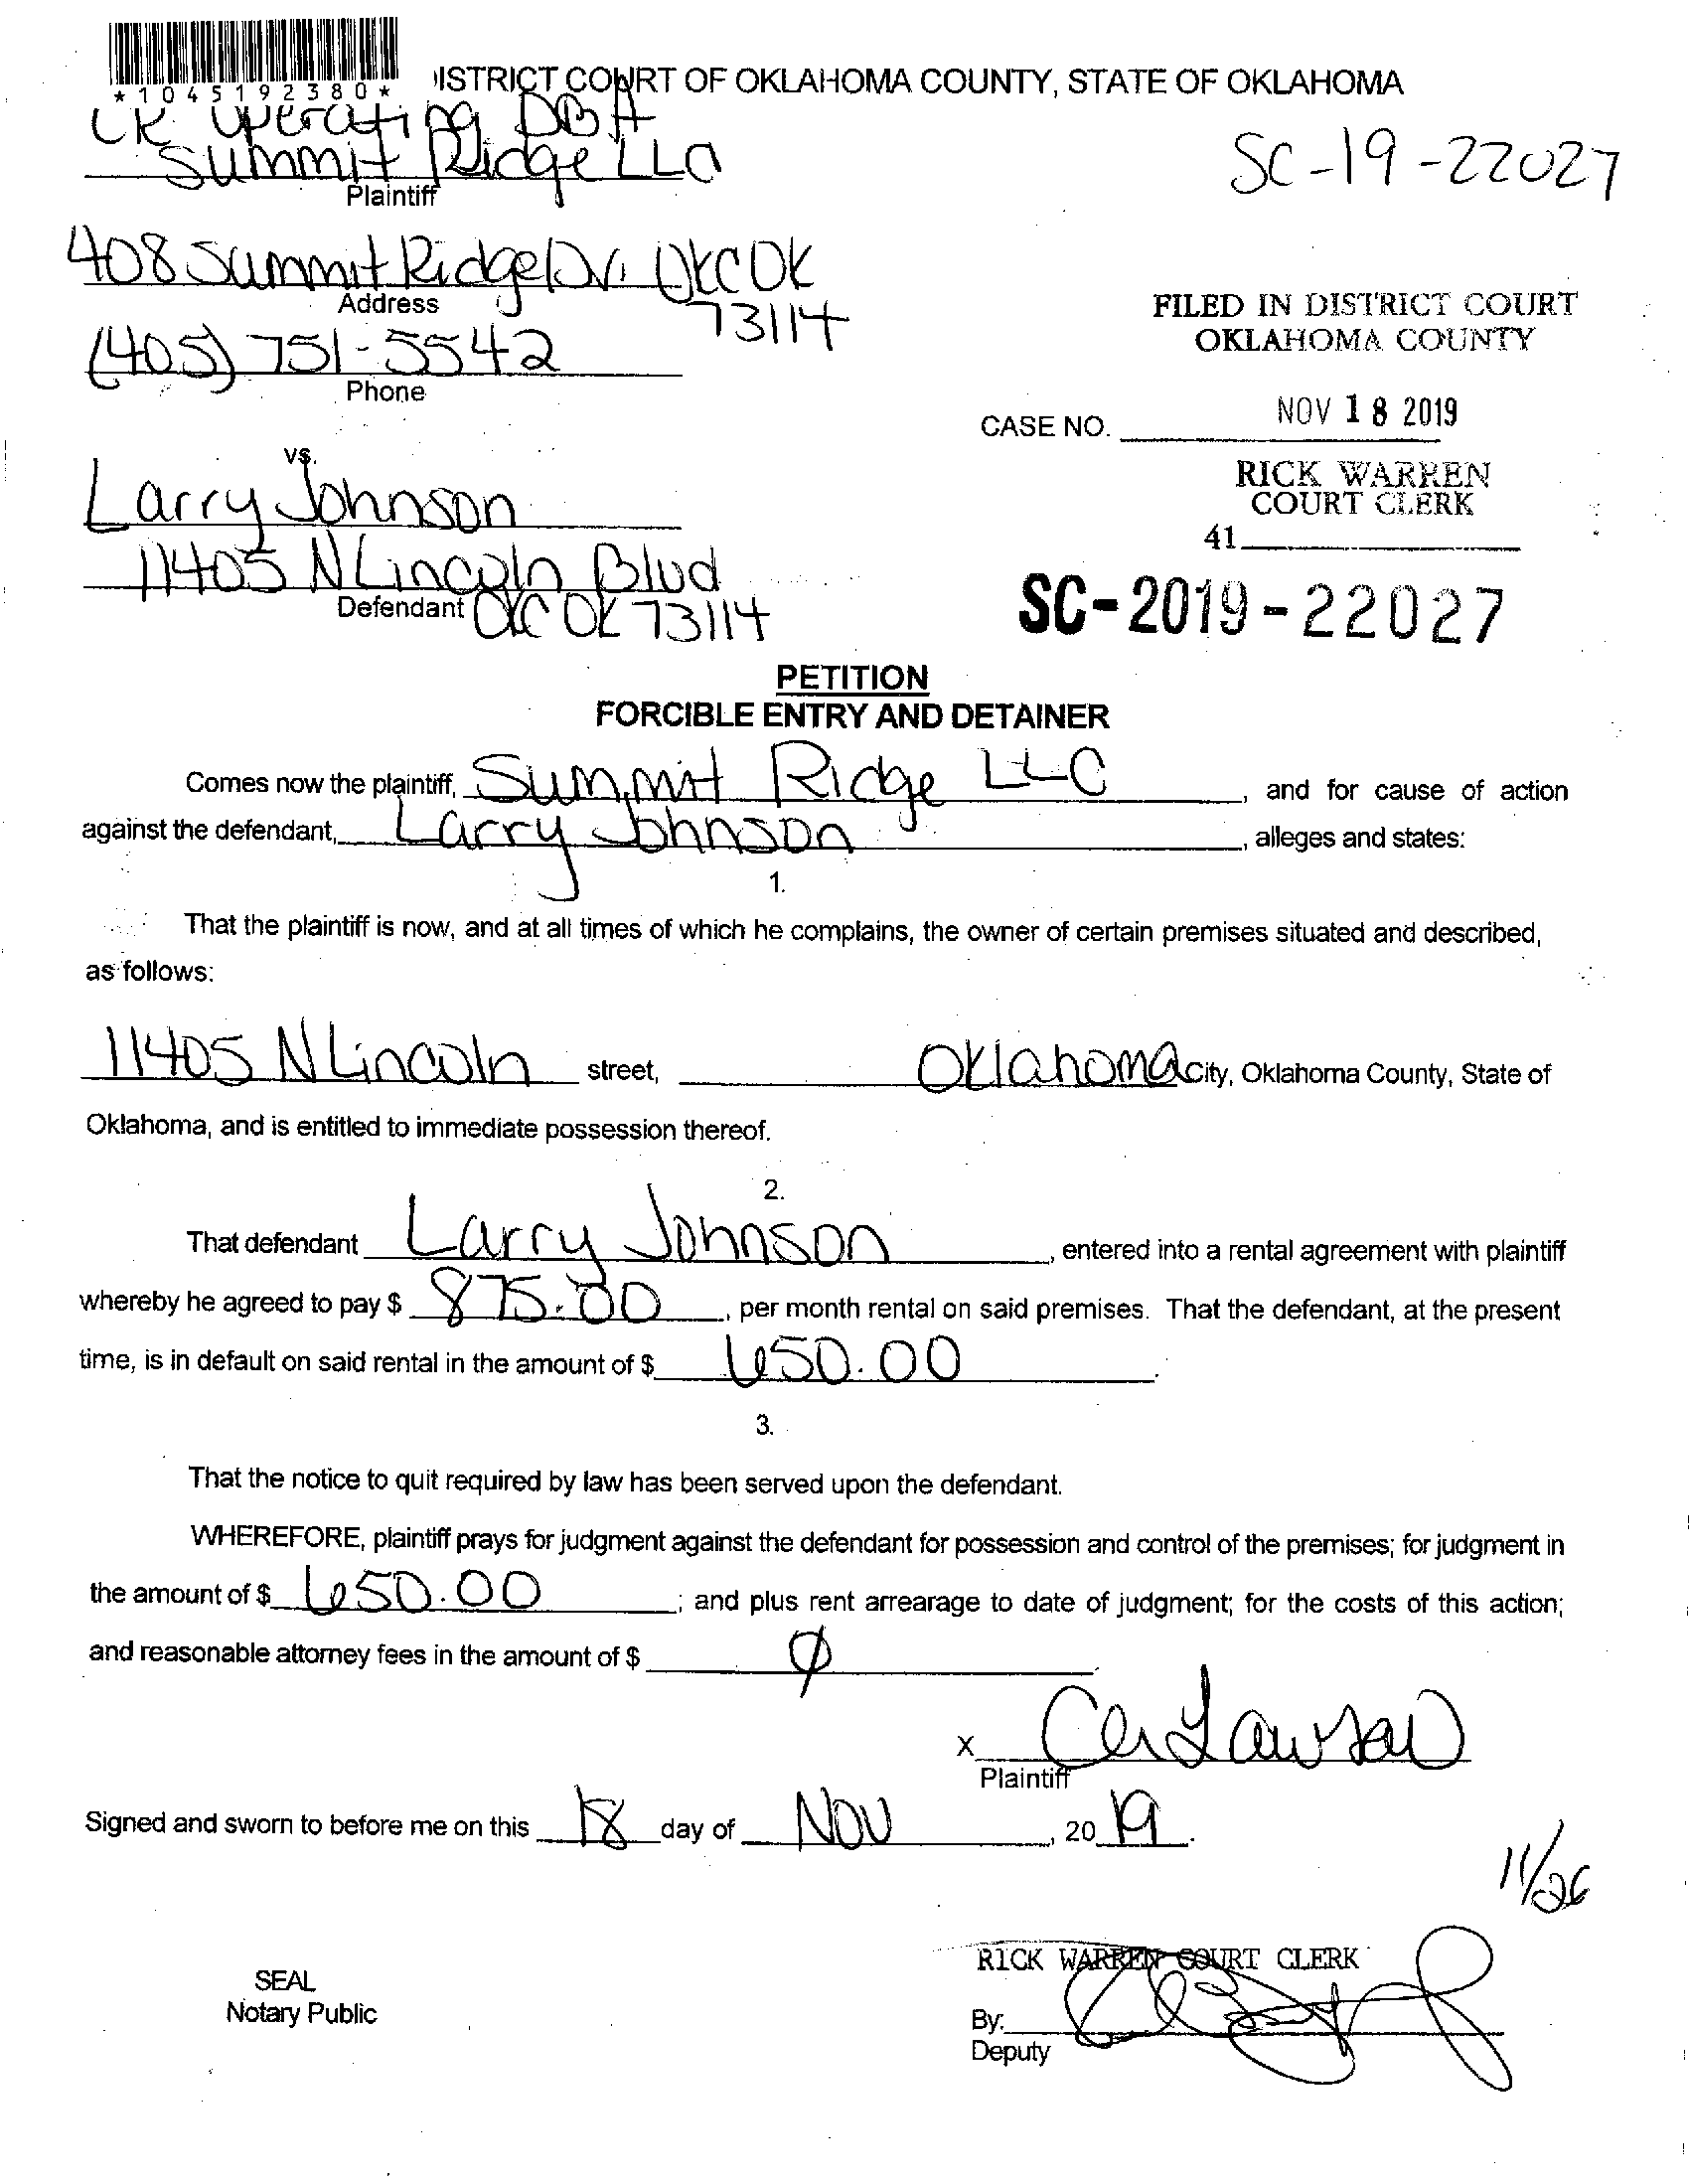 *1045192380*
ISTRICT COURT OF OKLAHOMA COUNTY, STATE OF OKLAHOMA
Operating DBA
Summit Ridge LLC
Plaintiff
SC-19-22027
408 Summit Ridge Dr. OKC OK
73114
Address
(405) 751-5542
Phone
FILED IN DISTRICT COURT
OKLAHOMA COUNTY
NOV 18 2019
CASE NO.
RICK WARREN
COURT CLERK
41
vs.
Larry Johnson
11405 N Lincoln Blvd
Defendant OKC OK 73114
SC-2019-22027
PETITION
FORCIBLE ENTRY AND DETAINER
Comes now the plaintiff, Summit Ridge LLC, and for cause of action
against the defendant, Larry Johnson, alleges and states:
1.
That the plaintiff is now, and at all times of which he complains, the owner of certain premises situated and described,
as follows:
11405 N Lincoln street, Oklahoma City, Oklahoma County, State of
Oklahoma, and is entitled to immediate possession thereof.
2.
That defendant Larry Johnson, entered into a rental agreement with plaintiff
whereby he agreed to pay $ 875.00, per month rental on said premises. That the defendant, at the present
time, is in default on said rental in the amount of $ 650.00.
3.
That the notice to quit required by law has been served upon the defendant.
WHEREFORE, plaintiff prays for judgment against the defendant for possession and control of the premises; for judgment in
the amount of $ 650.00; and plus rent arrearage to date of judgment; for the costs of this action;
and reasonable attorney fees in the amount of $ Ø
X
Plaintiff
Signed and sworn to before me on this 18 day of NOV, 20 19.
11/26
RICK WARREN COURT CLERK
SEAL
Notary Public
By:
Deputy